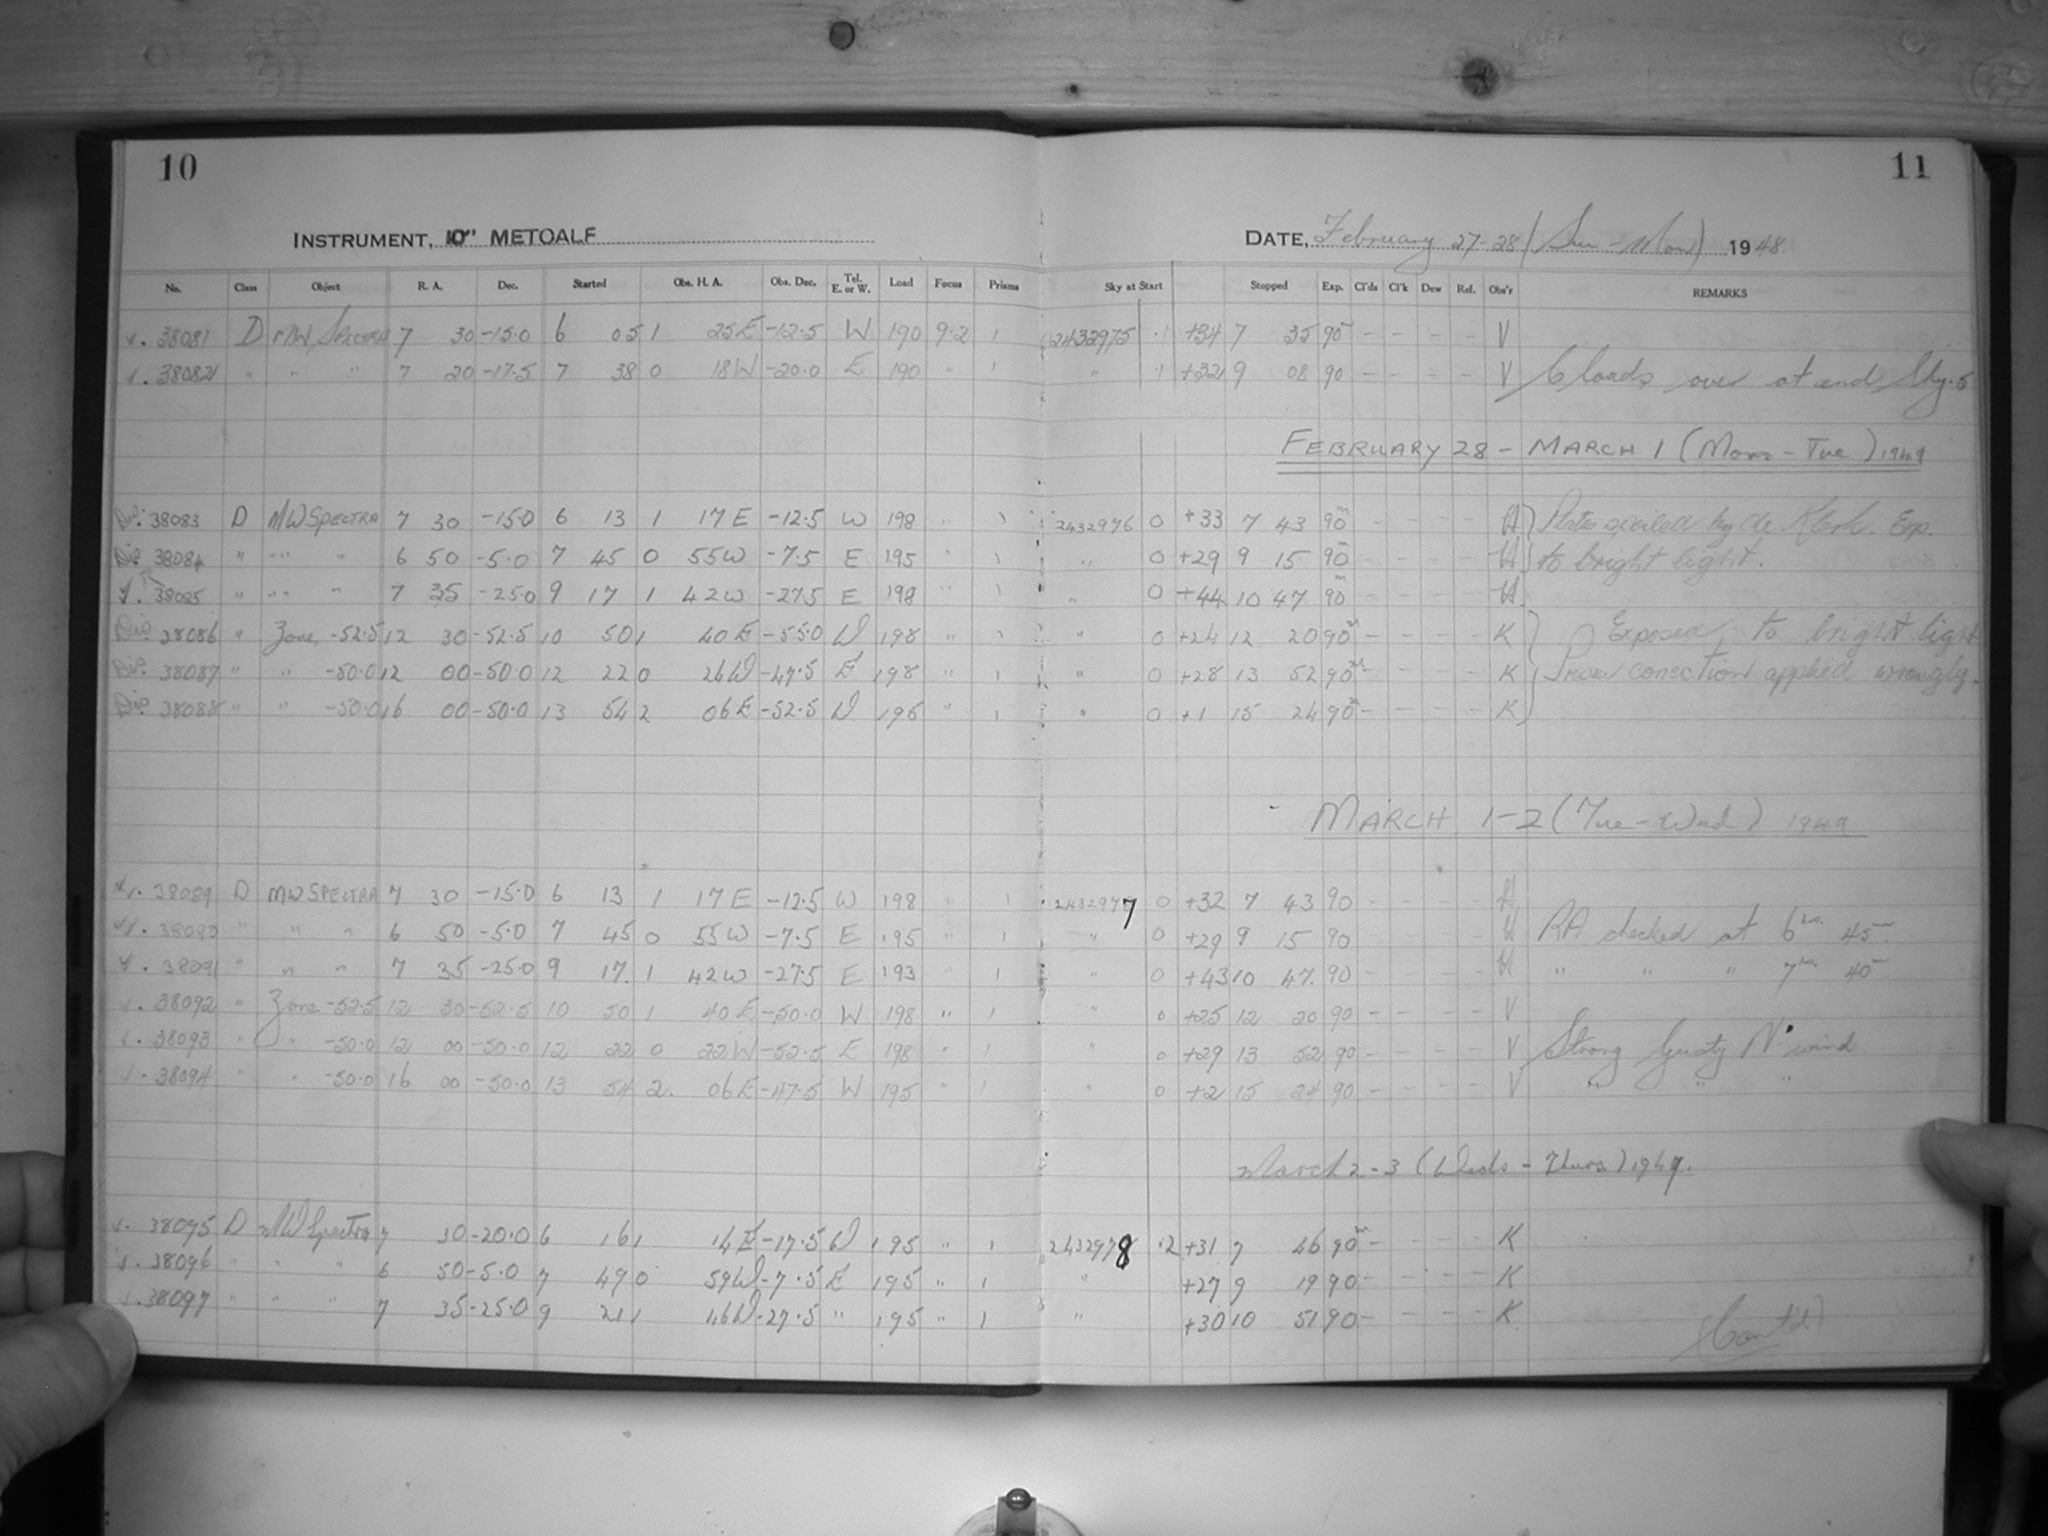 10
11
INSTRUMENT, 10" METCALF
DATE, February 27-28 (Sun - Mon) 1948
No. Class Object R. A. Dec. Started Obs. H. A. Obs. Dec. Tel. E. or W. Load Focus Prisms Sky at Start Stopped Exp. Cl'ds Cl'k Dew Ref. Obs'r REMARKS
v. 38081 D MW SPECTRA 7 30 -15.0 6 05 1 25E -12.5 W 190 9.2 1 2432975 .1 +34 7 35 90m - - - - V
v. 38082 " " " 7 20 -17.5 7 38 0 18W -20.0 E 190 " 1 " .1 +32 9 08 90 - - - - V Clouds over at end, Sky.5
FEBRUARY 28 - MARCH 1 (Mon - Tue) 1949
Dis. 38083 D MW SPECTRA 7 30 -15.0 6 13 1 17E -12.5 W 198 " 1 2432976 0 +33 7 43 90m - - - - H Plates spoiled by de Klerk. Exp.
Dis. 38084 " " " " 6 50 -5.0 7 45 0 55W -7.5 E 195 " 1 " 0 +29 9 15 90m - - - - H to bright light.
v. 38085 " " " " 7 35 -25.0 9 17 1 42W -27.5 E 198 " 1 " 0 +44 10 47 90m - - - - H
Dis. 38086 " Zone, -52.5 12 30 -52.5 10 50 1 40E -55.0 W 198 " 1 " 0 +24 12 20 90m - - - - K Exposed to bright light
Dis. 38087 " " -50.0 12 00 -50.0 12 22 0 26W -47.5 E 198 " 1 " 0 +28 13 52 90m - - - - K correction applied wrongly.
Dis. 38088 " " -50.0 16 00 -50.0 13 54 2 06E -52.5 W 195 " 1 " 0 +1 15 24 90m - - - - K
MARCH 1-2 (Tue - Wed) 1949
v. 38089 D MW SPECTRA 7 30 -15.0 6 13 1 17E -12.5 W 198 " 1 2432977 0 +32 7 43 90 - - - - H
v. 38090 " " " 6 50 -5.0 7 45 0 55W -7.5 E 195 " 1 " 0 +29 9 15 90 - - - - H RA checked at 6hr. 45m.
v. 38091 " " " 7 35 -25.0 9 17. 1 42W -27.5 E 193 1 " 0 +43 10 47. 90 - - - - H " " " 7hr. 40m
v. 38092 " Zone -52.5 12 30 -52.5 10 50 1 40E -50.0 W 198 " 1 " 0 +25 12 20 90 - - - - V
v. 38093 " " -50.0 12 00 -50.0 12 22 0 22W -52.5 E 198 " 1 " 0 +29 13 52 90 - - - - V Strong Gusty N. wind
v. 38094 " " -50.0 16 00 -50.0 13 54 2. 06E -47.5 W 195 " 1 " 0 +2 15 24 90 - - - - V " " "
March 2-3 (Weds - Thurs) 1949.
v. 38095 D MW Spectra 7 30 -20.0 6 16 1 14E -17.5 W 195 " 1 2432978 .2 +31 7 46 90m - - - - K
v. 38096 " " " 6 50 -5.0 7 49 0 59W -7.5 E 195 " 1 " +27 9 19 90 - - - - K
v. 38097 " " " 7 35 -25.0 9 21 1 46W -27.5 " 195 " 1 " +30 10 51 90 - - - - K
(Cont'd)